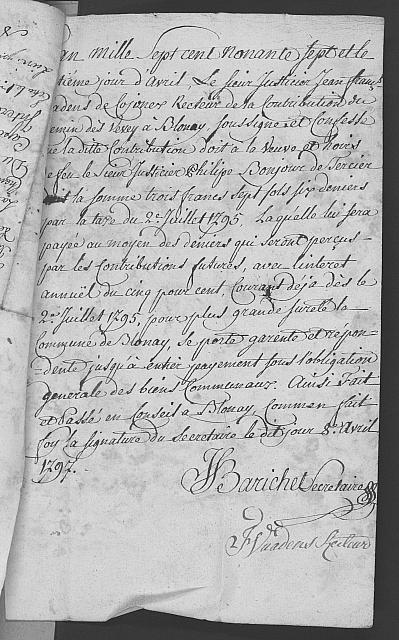 an mille Sept cent nonante sept et le
tième jour d'Avril, Le Sieur Justicier Jean franç.s
adens de Cojonex Recteur de la Contribution du
emin des Vevey a Blonay, soussigné et Confesse
ue la ditte Contribution doit à la veuve et hoirs
feu le Sieur Justicier Philipe Bonjour de Tercier
la somme trois francs sept sols six deniers
par la taxe du 2.e Juillet 1795. Laquelle lui sera
payée au moyen des deniers qui seront perçus
par les Contributions futures, avec l'interet
annüel du cinq pour cent Courant deja dès le
2.e Juillet 1795, pour plus grande sureté la
Commune de Blonay, se porte garente et répon-
dente jusqu'à entier payement sous l'obligation
generale des biens Communaux. Ainsi Fait
et Passé en Conseil a Blonay, Comme en fait
foy la signature du Secretaire le dit jour 8.e Avril
1797.
Barichet Secretaire
Vuadens Recteur